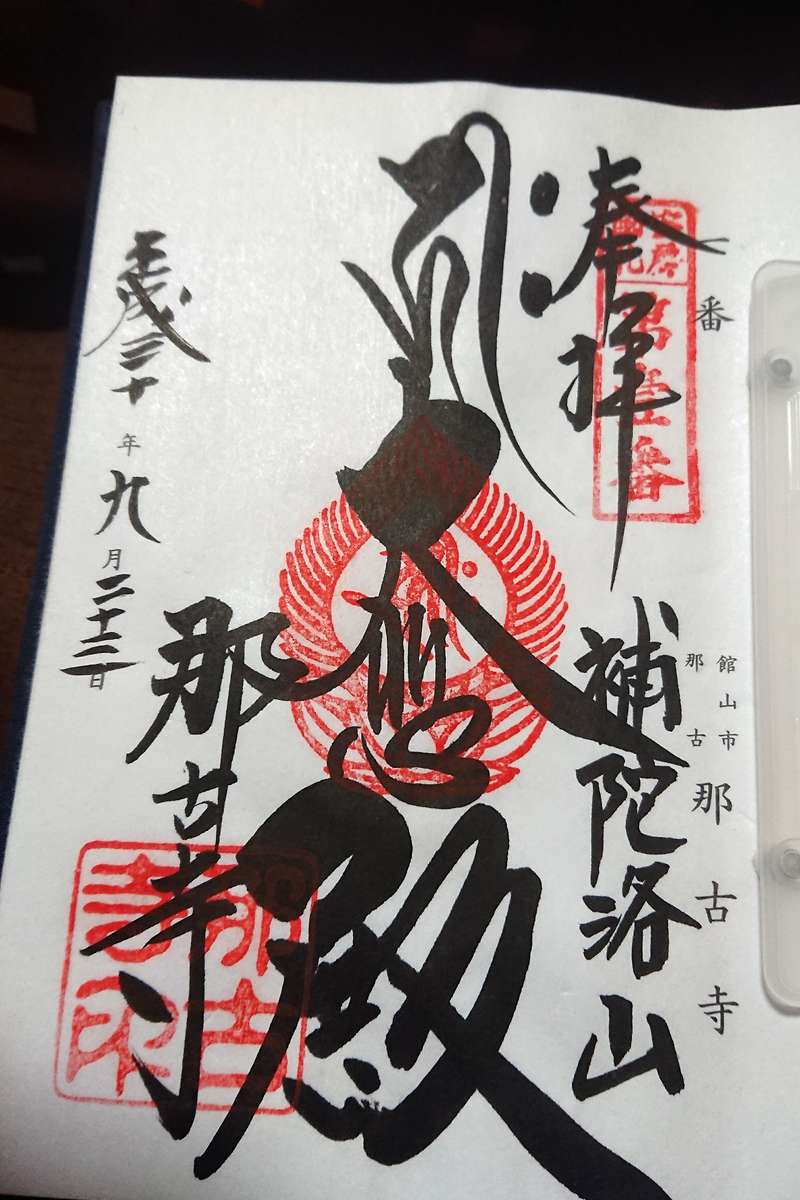 番
館山市
那古
那古寺
奉拝
補陀洛山
安房
國札
第壹番
大悲殿
那古寺
那古寺印
平成三十年九月二十三日